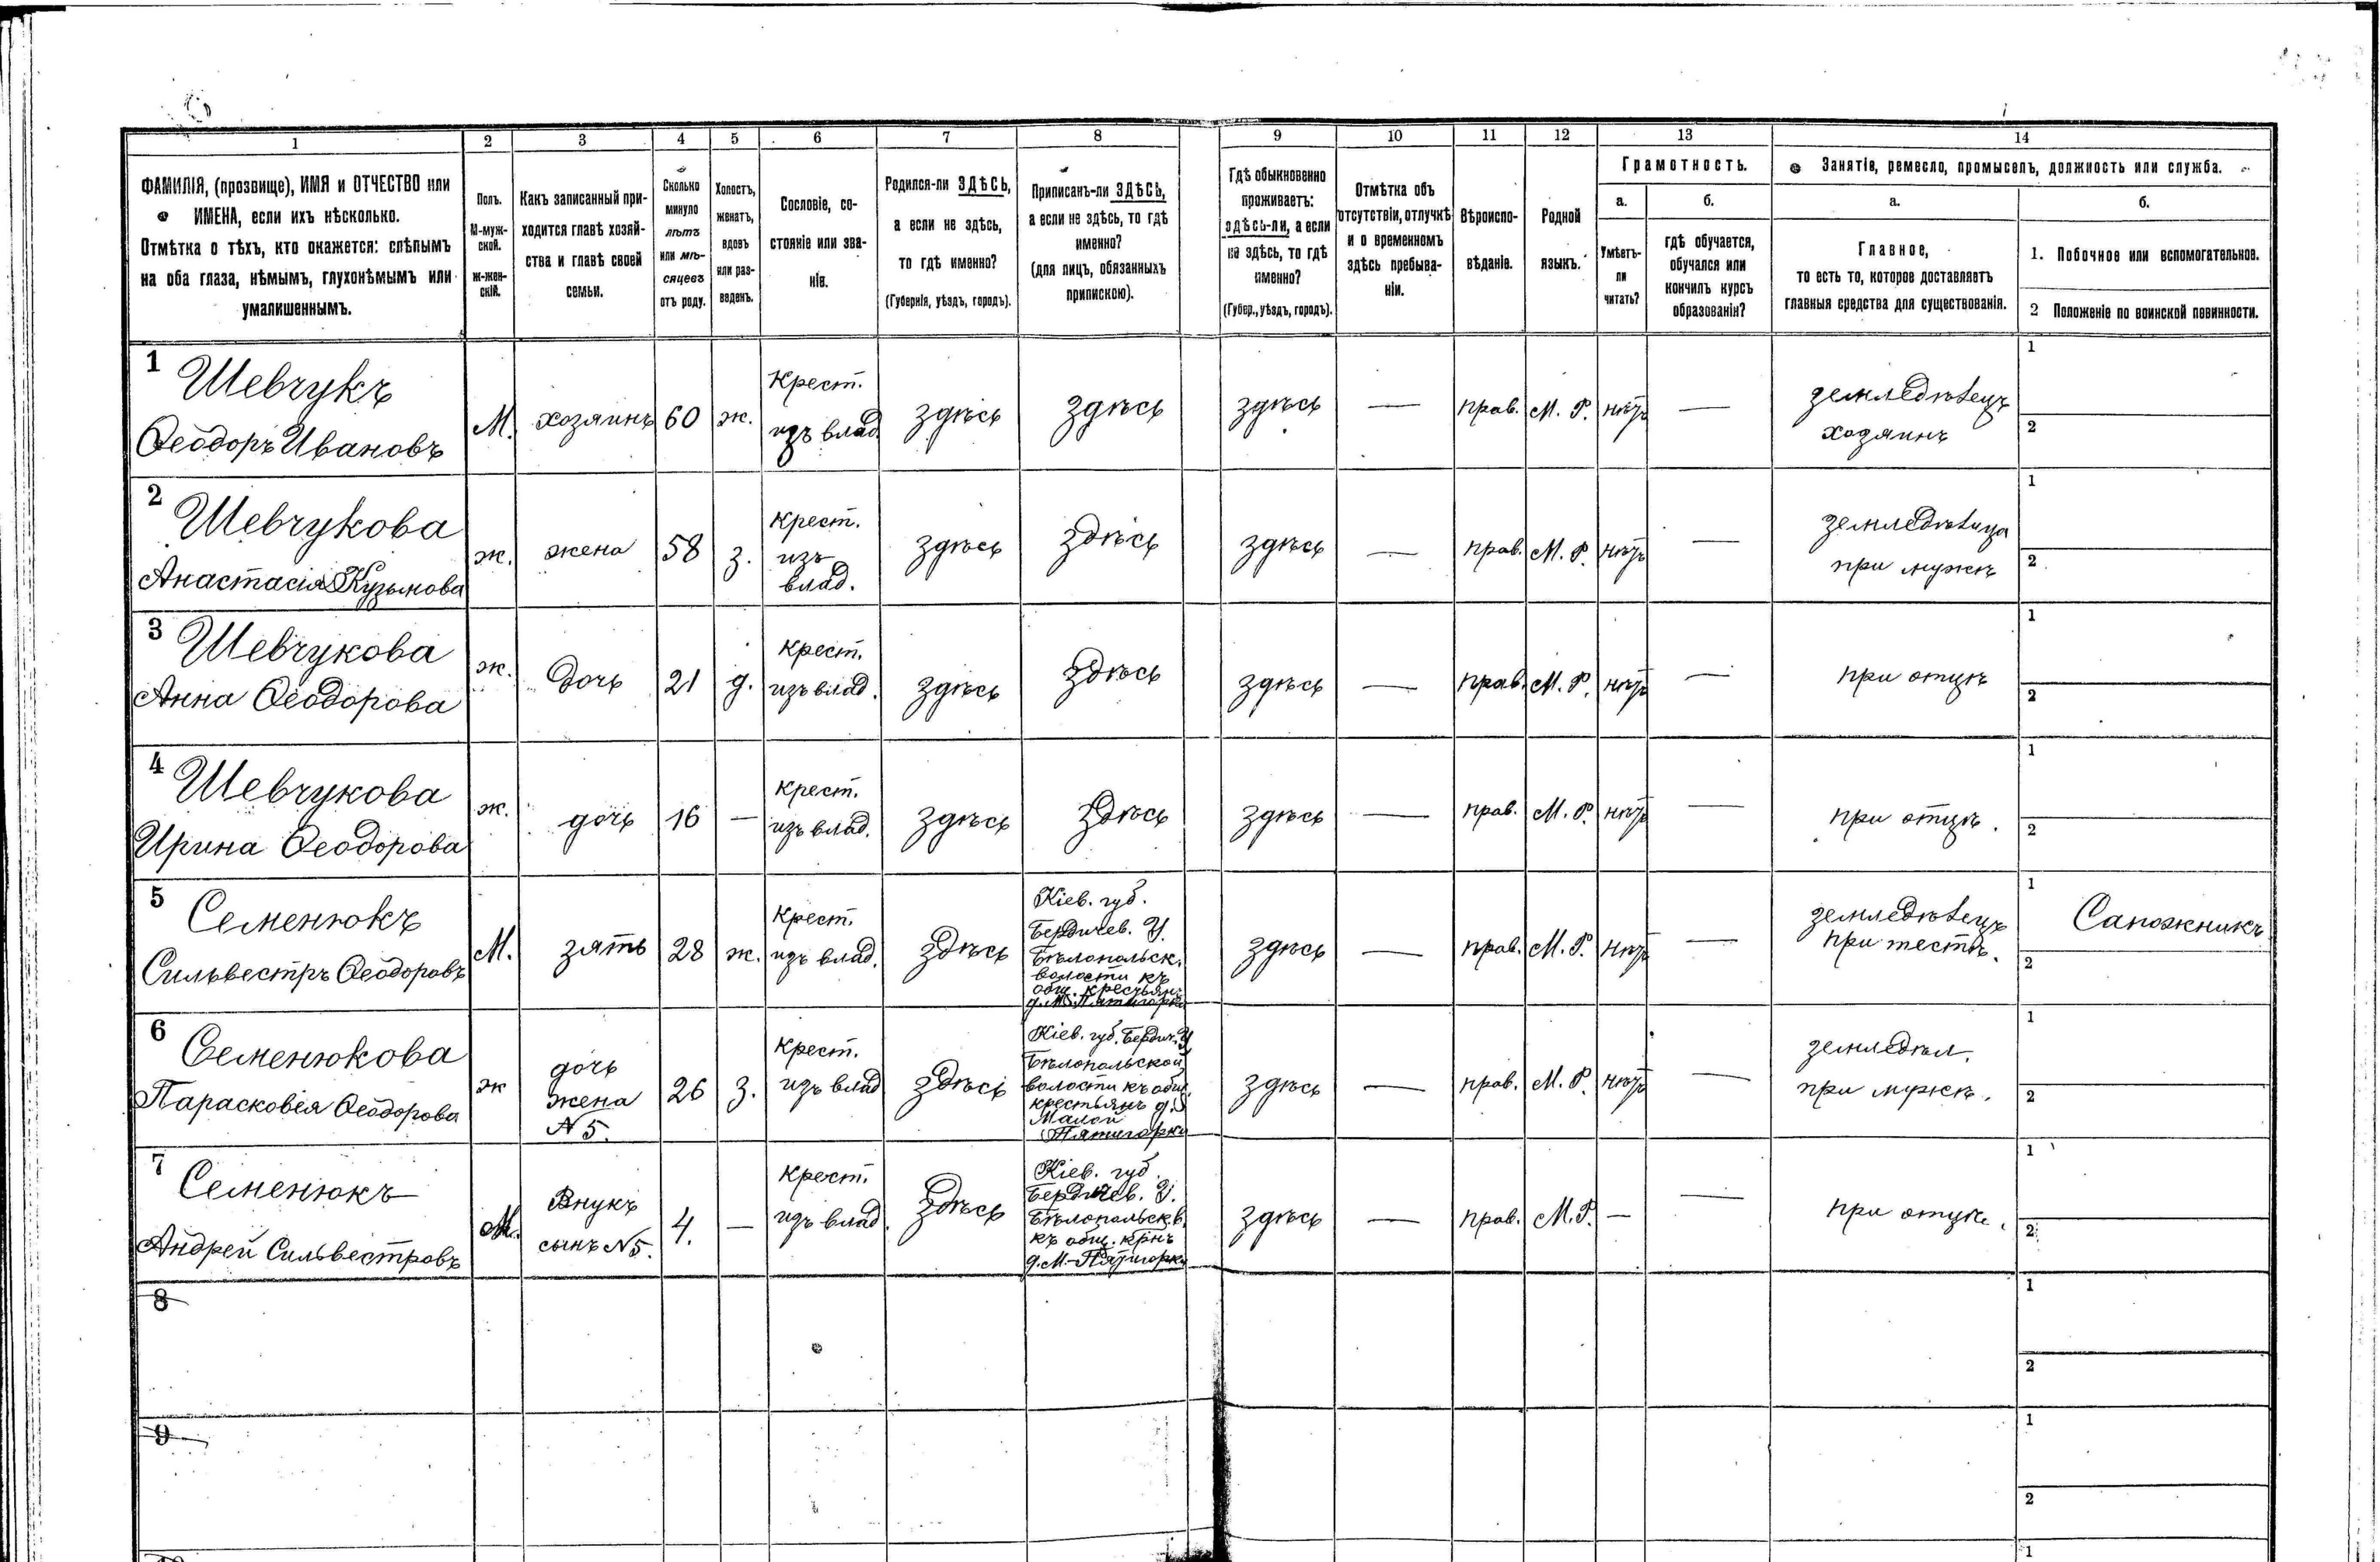 1 2 3 4 5 6 7 8 9 10 11 12 13 14
ФАМИЛІЯ, (прозвище), ИМЯ и ОТЧЕСТВО или
ИМЕНА, если ихъ нѣсколько.
Отмѣтка о тѣхъ, кто окажется: слѣпымъ
на оба глаза, нѣмымъ, глухонѣмымъ или
умалишеннымъ.
Полъ.
М-муж-
ской.
ж-жен-
скій.
Какъ записанный при-
ходится главѣ хозяй-
ства и главѣ своей
семьи.
Сколько
минуло
лѣтъ
или мѣ-
сяцевъ
отъ роду.
Холостъ,
женатъ,
вдовъ
или раз-
веденъ.
Сословіе, со-
стояніе или зва-
ніе.
Родился-ли ЗДѢСЬ,
а если не здѣсь,
то гдѣ именно?
(Губернія, уѣздъ, городъ).
Приписанъ-ли ЗДѢСЬ,
а если не здѣсь, то гдѣ
именно?
(для лицъ, обязанныхъ
припискою).
Гдѣ обыкновенно
проживаетъ:
здѣсь-ли, а если
не здѣсь, то гдѣ
именно?
(Губер., уѣздъ, городъ).
Отмѣтка объ
отсутствіи, отлучкѣ
и о временномъ
здѣсь пребыва-
ніи.
Вѣроиспо-
вѣданіе.
Родной
языкъ.
Грамотность.
а.
Умѣетъ-
ли
читать?
б.
гдѣ обучается,
обучался или
кончилъ курсъ
образованія?
Занятіе, ремесло, промыселъ, должность или служба.
а.
Главное,
то есть то, которое доставляетъ
главныя средства для существованія.
б.
1. Побочное или вспомогательное.
2 Положеніе по воинской повинности.
1
Шевчукъ
Ѳеодоръ Ивановъ
М.
хозяинъ
60
ж.
Крест.
изъ влад.
здѣсь
здѣсь
здѣсь
—
прав.
М. Р.
нѣтъ
—
земледѣлецъ
хозяинъ
1
2
2
Шевчукова
Анастасія Кузьмова
ж.
жена
58
з.
Крест.
изъ
влад.
здѣсь
здѣсь
здѣсь
—
прав.
М. Р.
нѣтъ
—
земледѣлица
при мужѣ
1
2
3
Шевчукова
Анна Ѳеодорова
ж.
дочь
21
д.
Крест.
изъ влад.
здѣсь
здѣсь
здѣсь
—
прав.
М. Р.
нѣтъ
—
при отцѣ
1
2
4
Шевчукова
Ирина Ѳеодорова
ж.
дочь
16
—
Крест.
изъ влад.
здѣсь
здѣсь
здѣсь
—
прав.
М. Р.
нѣтъ
—
при отцѣ.
1
2
5
Семенюкъ
Сильвестръ Ѳеодоровъ
М.
зять
28
ж.
Крест.
изъ влад.
здѣсь
Кіев. губ.
Бердичев. У.
Бѣлопольск.
волости къ
общ. крестьян.
д. М. Пятигорки
здѣсь
—
прав.
М. Р.
нѣтъ
—
земледѣлецъ
при тестѣ.
1 Сапожникъ
2
6
Семенюкова
Парасковія Ѳеодорова
ж
дочь
жена
N 5.
26
з.
Крест.
изъ влад
здѣсь
Кіев. губ. Бердич. У
Бѣлопольской
волости къ общ.
крестьянъ д.
Малой
Пятигорки
здѣсь
—
прав.
М. Р.
нѣтъ
—
земледѣл.
при мужѣ.
1
2
7
Семенюкъ
Андрей Сильвестровъ
М.
Внукъ
сынъ N 5.
4.
—
Крест.
изъ влад.
здѣсь
Кіев. губ.
Бердичев. У.
Бѣлопольск. в.
къ общ. крнъ
д. М.-Пятигорки
здѣсь
—
прав.
М. Р.
—
—
при отцѣ.
1
2
8
1
2
9
1
2
1